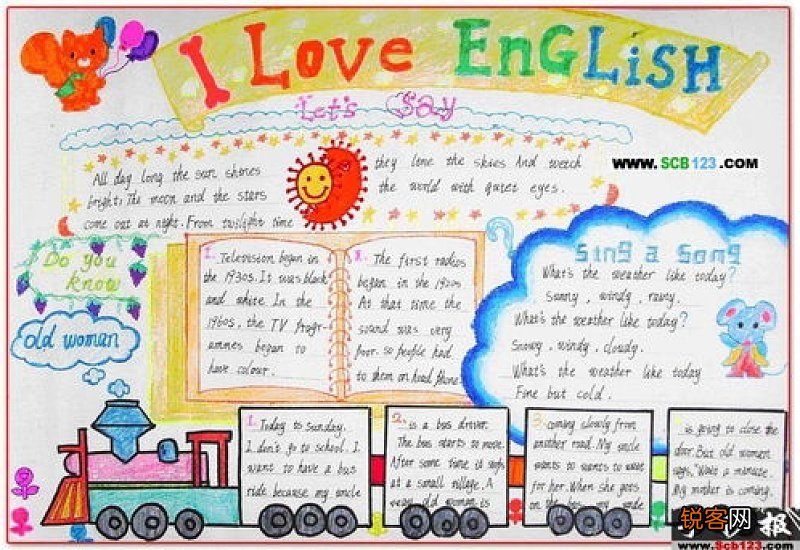 I Love English
Let's Say
WWW.SCB123.COM
All day long the sun shines
bright. The moon and the stars
come out at night. From twilight time
they lone the skies And watch
the world with quiet eyes.
Do you
know
old woman
1. Television began in
the 1930s. It was black
and white In the
1960s, the TV Progr-
ammes began to
have colour.
2. The first radios
began in the 1920s
At that time the
sound was very
poor. so people had
to them on head phone
Sing a Song
What's the weather like today?
Sunny, windy, rainy.
What's the weather like today?
Snowy, windy, cloudy.
What's the weather like today
Fine but cold.
1. Today is Sunday.
I don't go to school. I
want to have a bus
ride. because my uncle
2. is a bus driver.
The bus starts to move.
After some time it stops
at a small village. A
old woman is
3. coming slowly from
another road. My uncle
wants to wants to wait
for her. When she goes
on the bus my uncle
is going to close the
door. But old women
says, "Wait a minute.
My mother is coming.
锐客网
报
www.Scb123.com